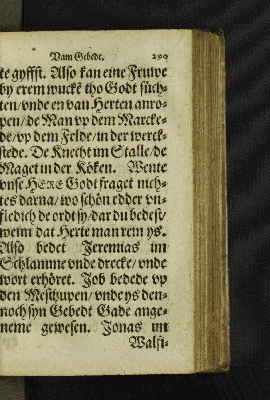 Vam Gebede. 290
ke gyffst. Also kan eine Fruwe
by erem wuckē tho Godt süch-
ten/vnde en van Herten anro-
pen/de Man vp dem Marcke-
de/vp dem Felde/in der werck-
stede. De Knecht im Stalle/de
Maget in der Köken. Wente
vnse HERE Godt fraget nich-
tes darna/wo schön edder vn-
fledich de ordt sy/dar du bedest/
wenn dat Herte man rein ys.
Also bedet Jeremias im
Schlamme vnde drecke/vnde
wört erhöret. Job bedede vp
den Mesthupen/vnde ys den-
noch syn Gebedt Gade ange-
neme gewesen. Jonas im
Walfi-